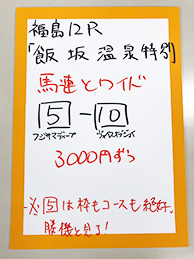 福島12R
「飯坂温泉特別」
馬連とワイド
5-10
フジサマディープ
3000円ずつ
※5は枠もコースも絶好。
勝機と見る!